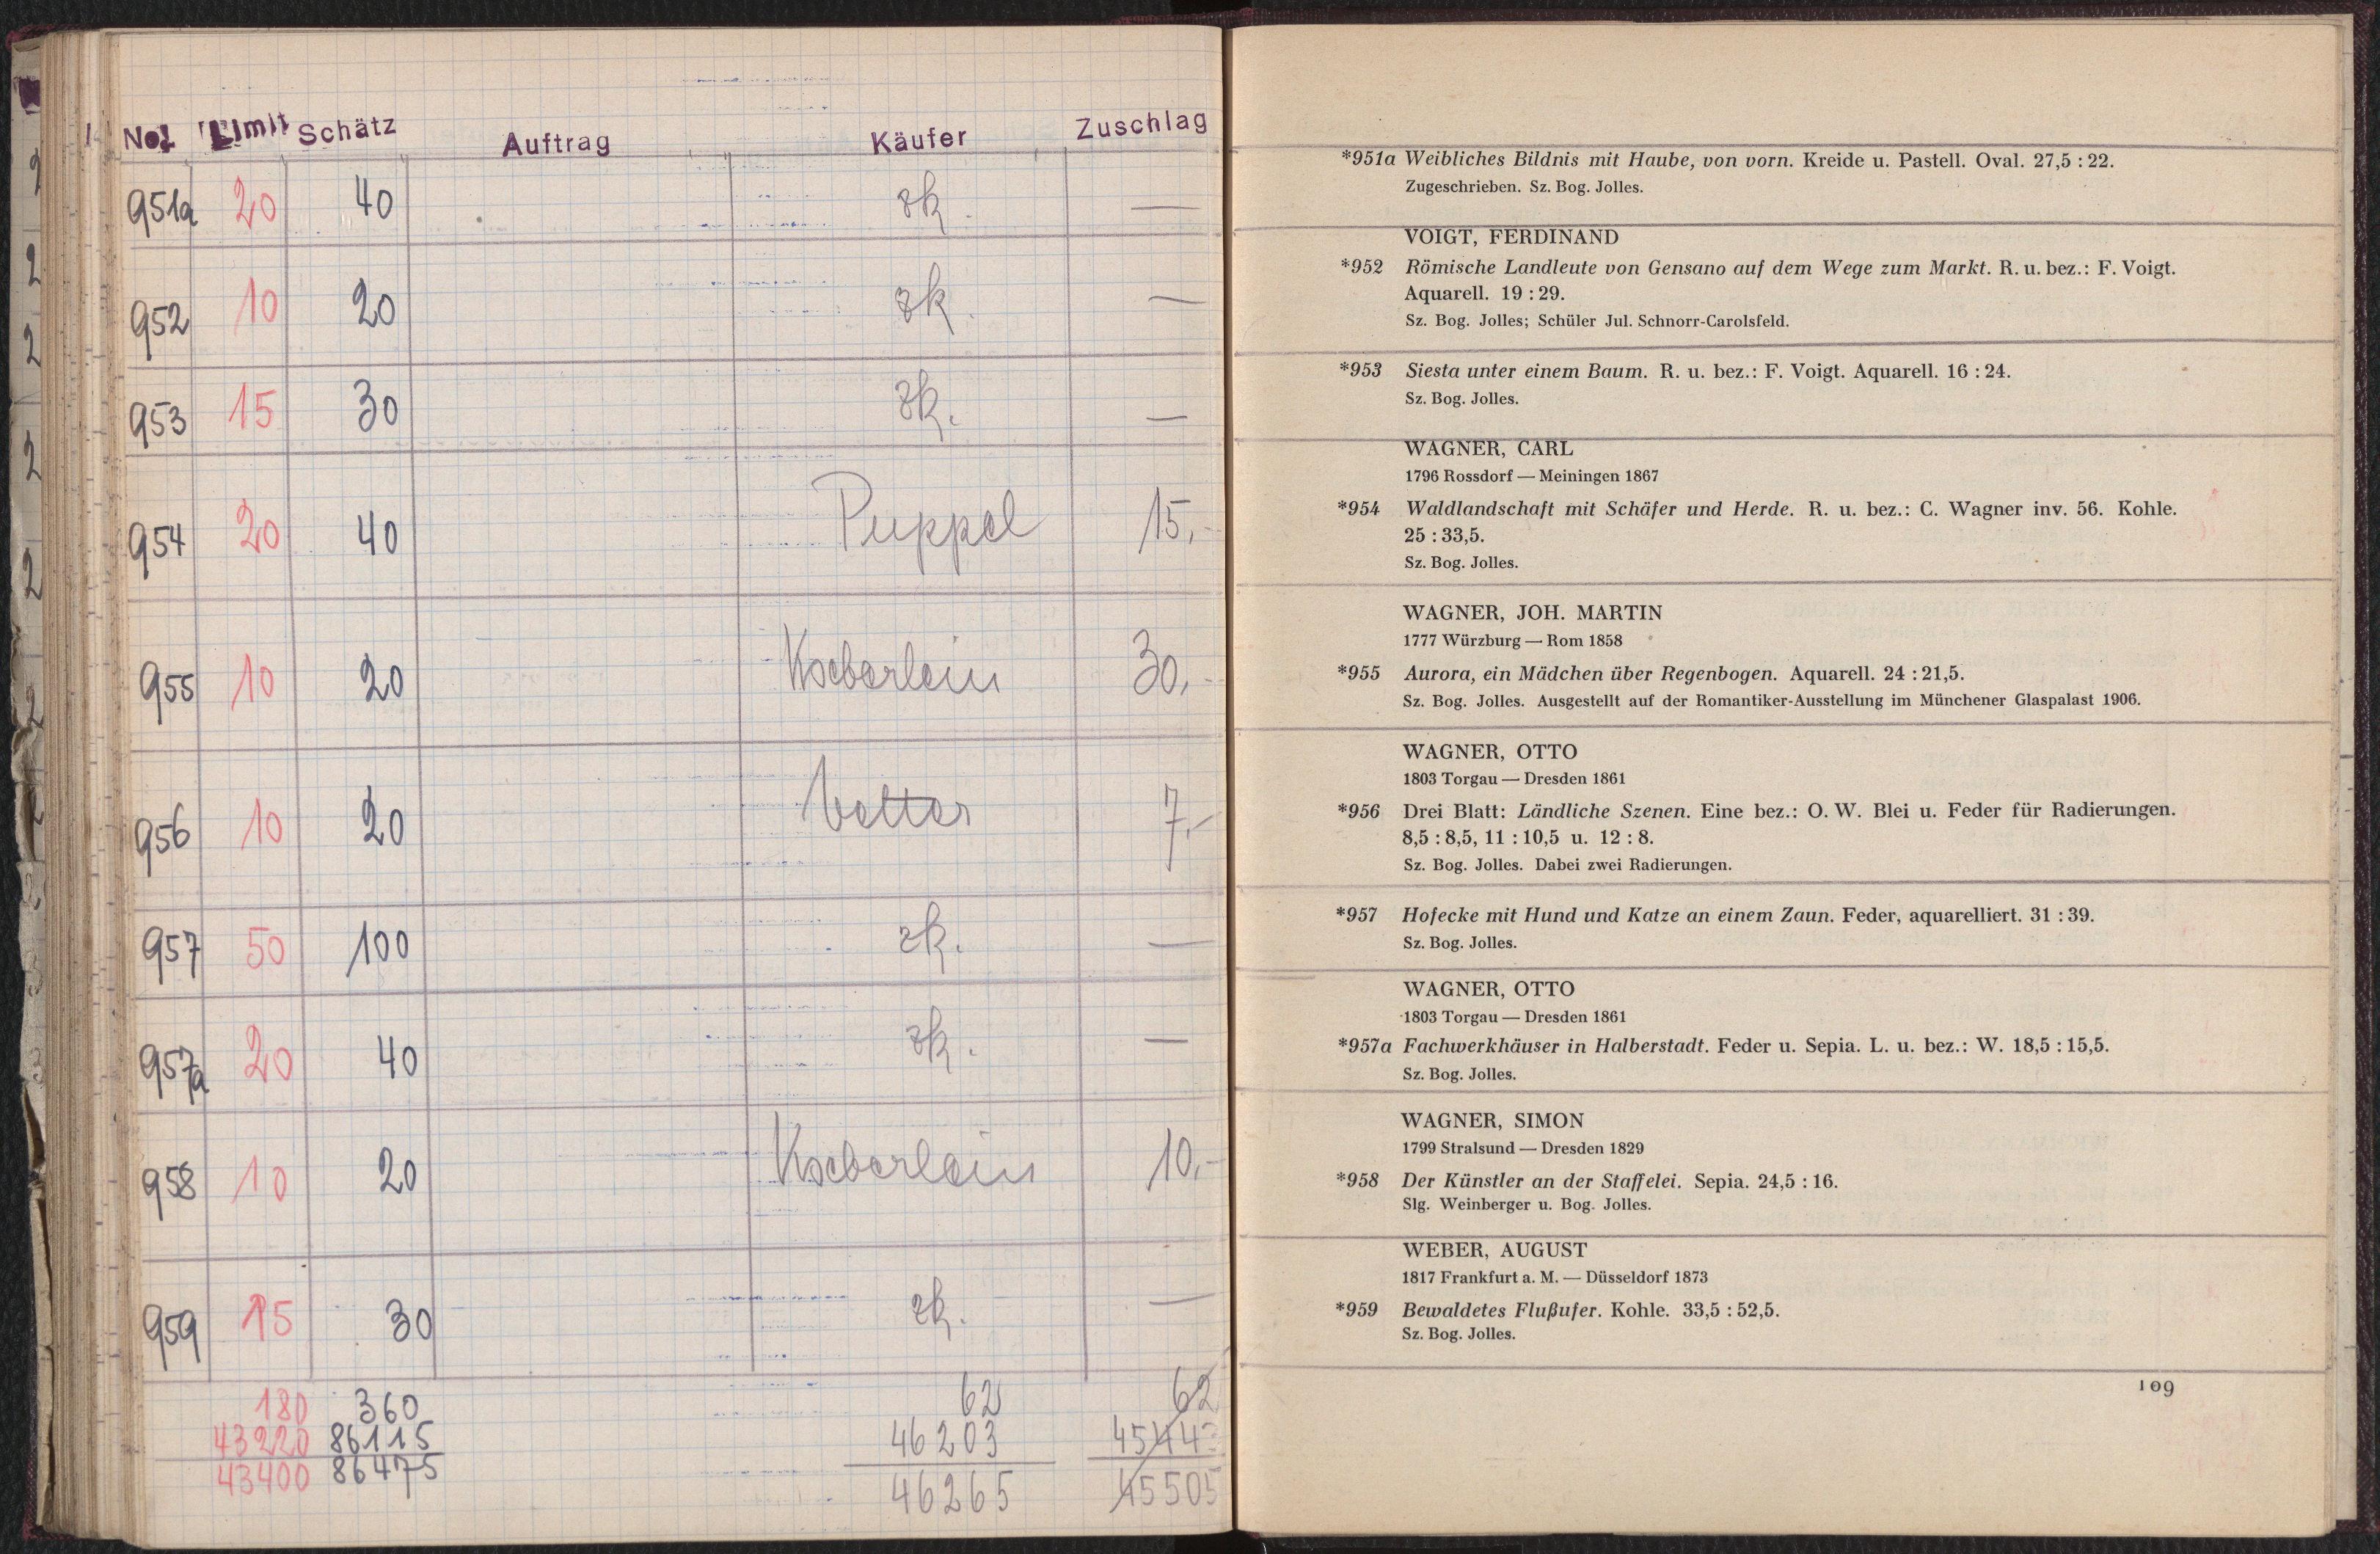 No. Limit Schätz Auftrag Käufer Zuschlag
951a 20 40 zk. —
952 10 20 zk. —
953 15 30 zk. —
954 20 40 Puppel 15,-
955 10 20 Koeberlein 30,-
956 10 20 Vetter 7,-
957 50 100 zk. —
957a 20 40 zk. —
958 10 20 Koeberlein 10,-
959 15 30 zk. —
180 360 62 62
43220 86115 46203
43400 86475 46265 45505
*951a Weibliches Bildnis mit Haube, von vorn. Kreide u. Pastell. Oval. 27,5 : 22.
Zugeschrieben. Sz. Bog. Jolles.
VOIGT, FERDINAND
*952 Römische Landleute von Gensano auf dem Wege zum Markt. R. u. bez.: F. Voigt.
Aquarell. 19 : 29.
Sz. Bog. Jolles; Schüler Jul. Schnorr-Carolsfeld.
*953 Siesta unter einem Baum. R. u. bez.: F. Voigt. Aquarell. 16 : 24.
Sz. Bog. Jolles.
WAGNER, CARL
1796 Rossdorf — Meiningen 1867
*954 Waldlandschaft mit Schäfer und Herde. R. u. bez.: C. Wagner inv. 56. Kohle.
25 : 33,5.
Sz. Bog. Jolles.
WAGNER, JOH. MARTIN
1777 Würzburg — Rom 1858
*955 Aurora, ein Mädchen über Regenbogen. Aquarell. 24 : 21,5.
Sz. Bog. Jolles. Ausgestellt auf der Romantiker-Ausstellung im Münchener Glaspalast 1906.
WAGNER, OTTO
1803 Torgau — Dresden 1861
*956 Drei Blatt: Ländliche Szenen. Eine bez.: O. W. Blei u. Feder für Radierungen.
8,5 : 8,5, 11 : 10,5 u. 12 : 8.
Sz. Bog. Jolles. Dabei zwei Radierungen.
*957 Hofecke mit Hund und Katze an einem Zaun. Feder, aquarelliert. 31 : 39.
Sz. Bog. Jolles.
WAGNER, OTTO
1803 Torgau — Dresden 1861
*957a Fachwerkhäuser in Halberstadt. Feder u. Sepia. L. u. bez.: W. 18,5 : 15,5.
Sz. Bog. Jolles.
WAGNER, SIMON
1799 Stralsund — Dresden 1829
*958 Der Künstler an der Staffelei. Sepia. 24,5 : 16.
Slg. Weinberger u. Bog. Jolles.
WEBER, AUGUST
1817 Frankfurt a. M. — Düsseldorf 1873
*959 Bewaldetes Flußufer. Kohle. 33,5 : 52,5.
Sz. Bog. Jolles.
109